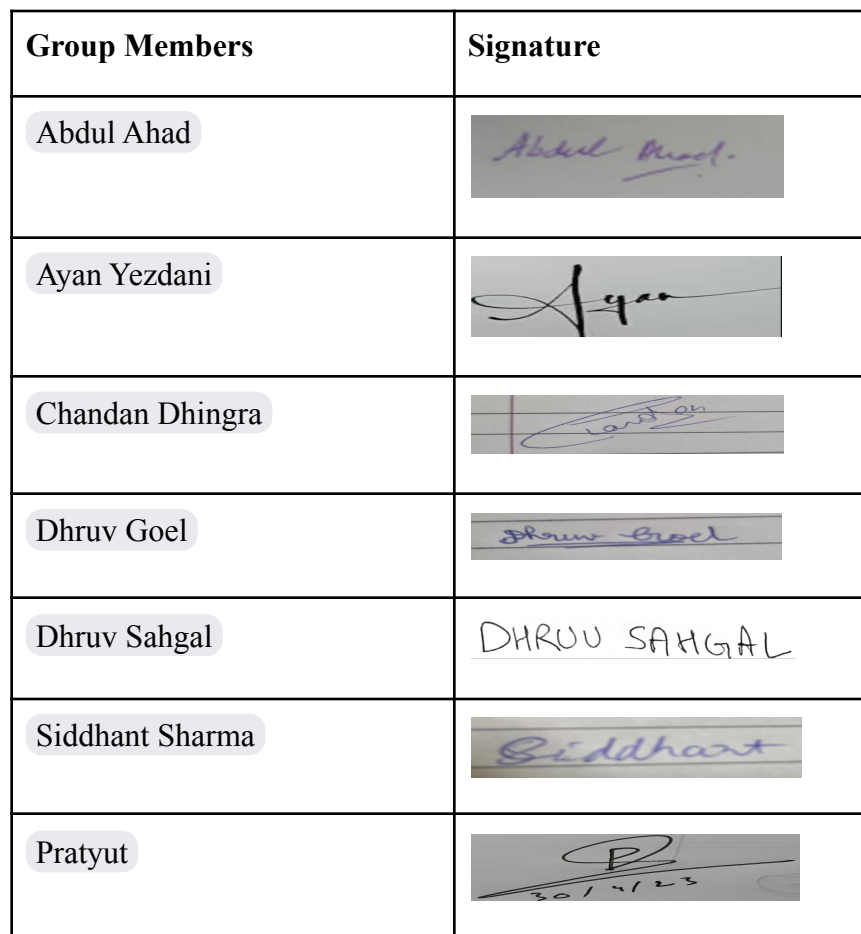 Group Members Signature
Abdul Ahad Abdul Ahad.
Ayan Yezdani Ayan
Chandan Dhingra Chandan
Dhruv Goel Dhruv Goel
Dhruv Sahgal DHRUV SAHGAL
Siddhant Sharma Siddhant
Pratyut P
30/4/23